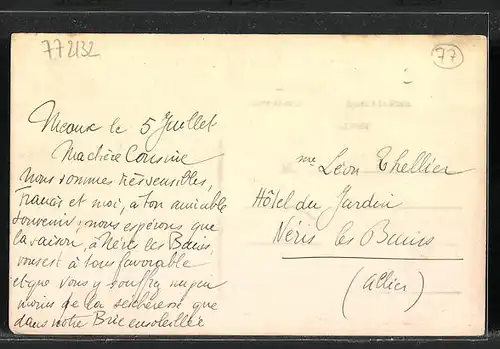 772132
77
Meaux le 5 Juillet
Ma chère Cousine
Nous sommes très sensibles,
Francis et moi, à ton amiable
souvenir; nous espérons que
la saison, à Néris les Bains,
vous est à tous favorable
et que vous y souffrez un peu
moins de la sécheresse que
dans notre Brie ensoleillée
Me Léon Thellier
Hôtel du Jardin
Néris les Bains
(Allier)